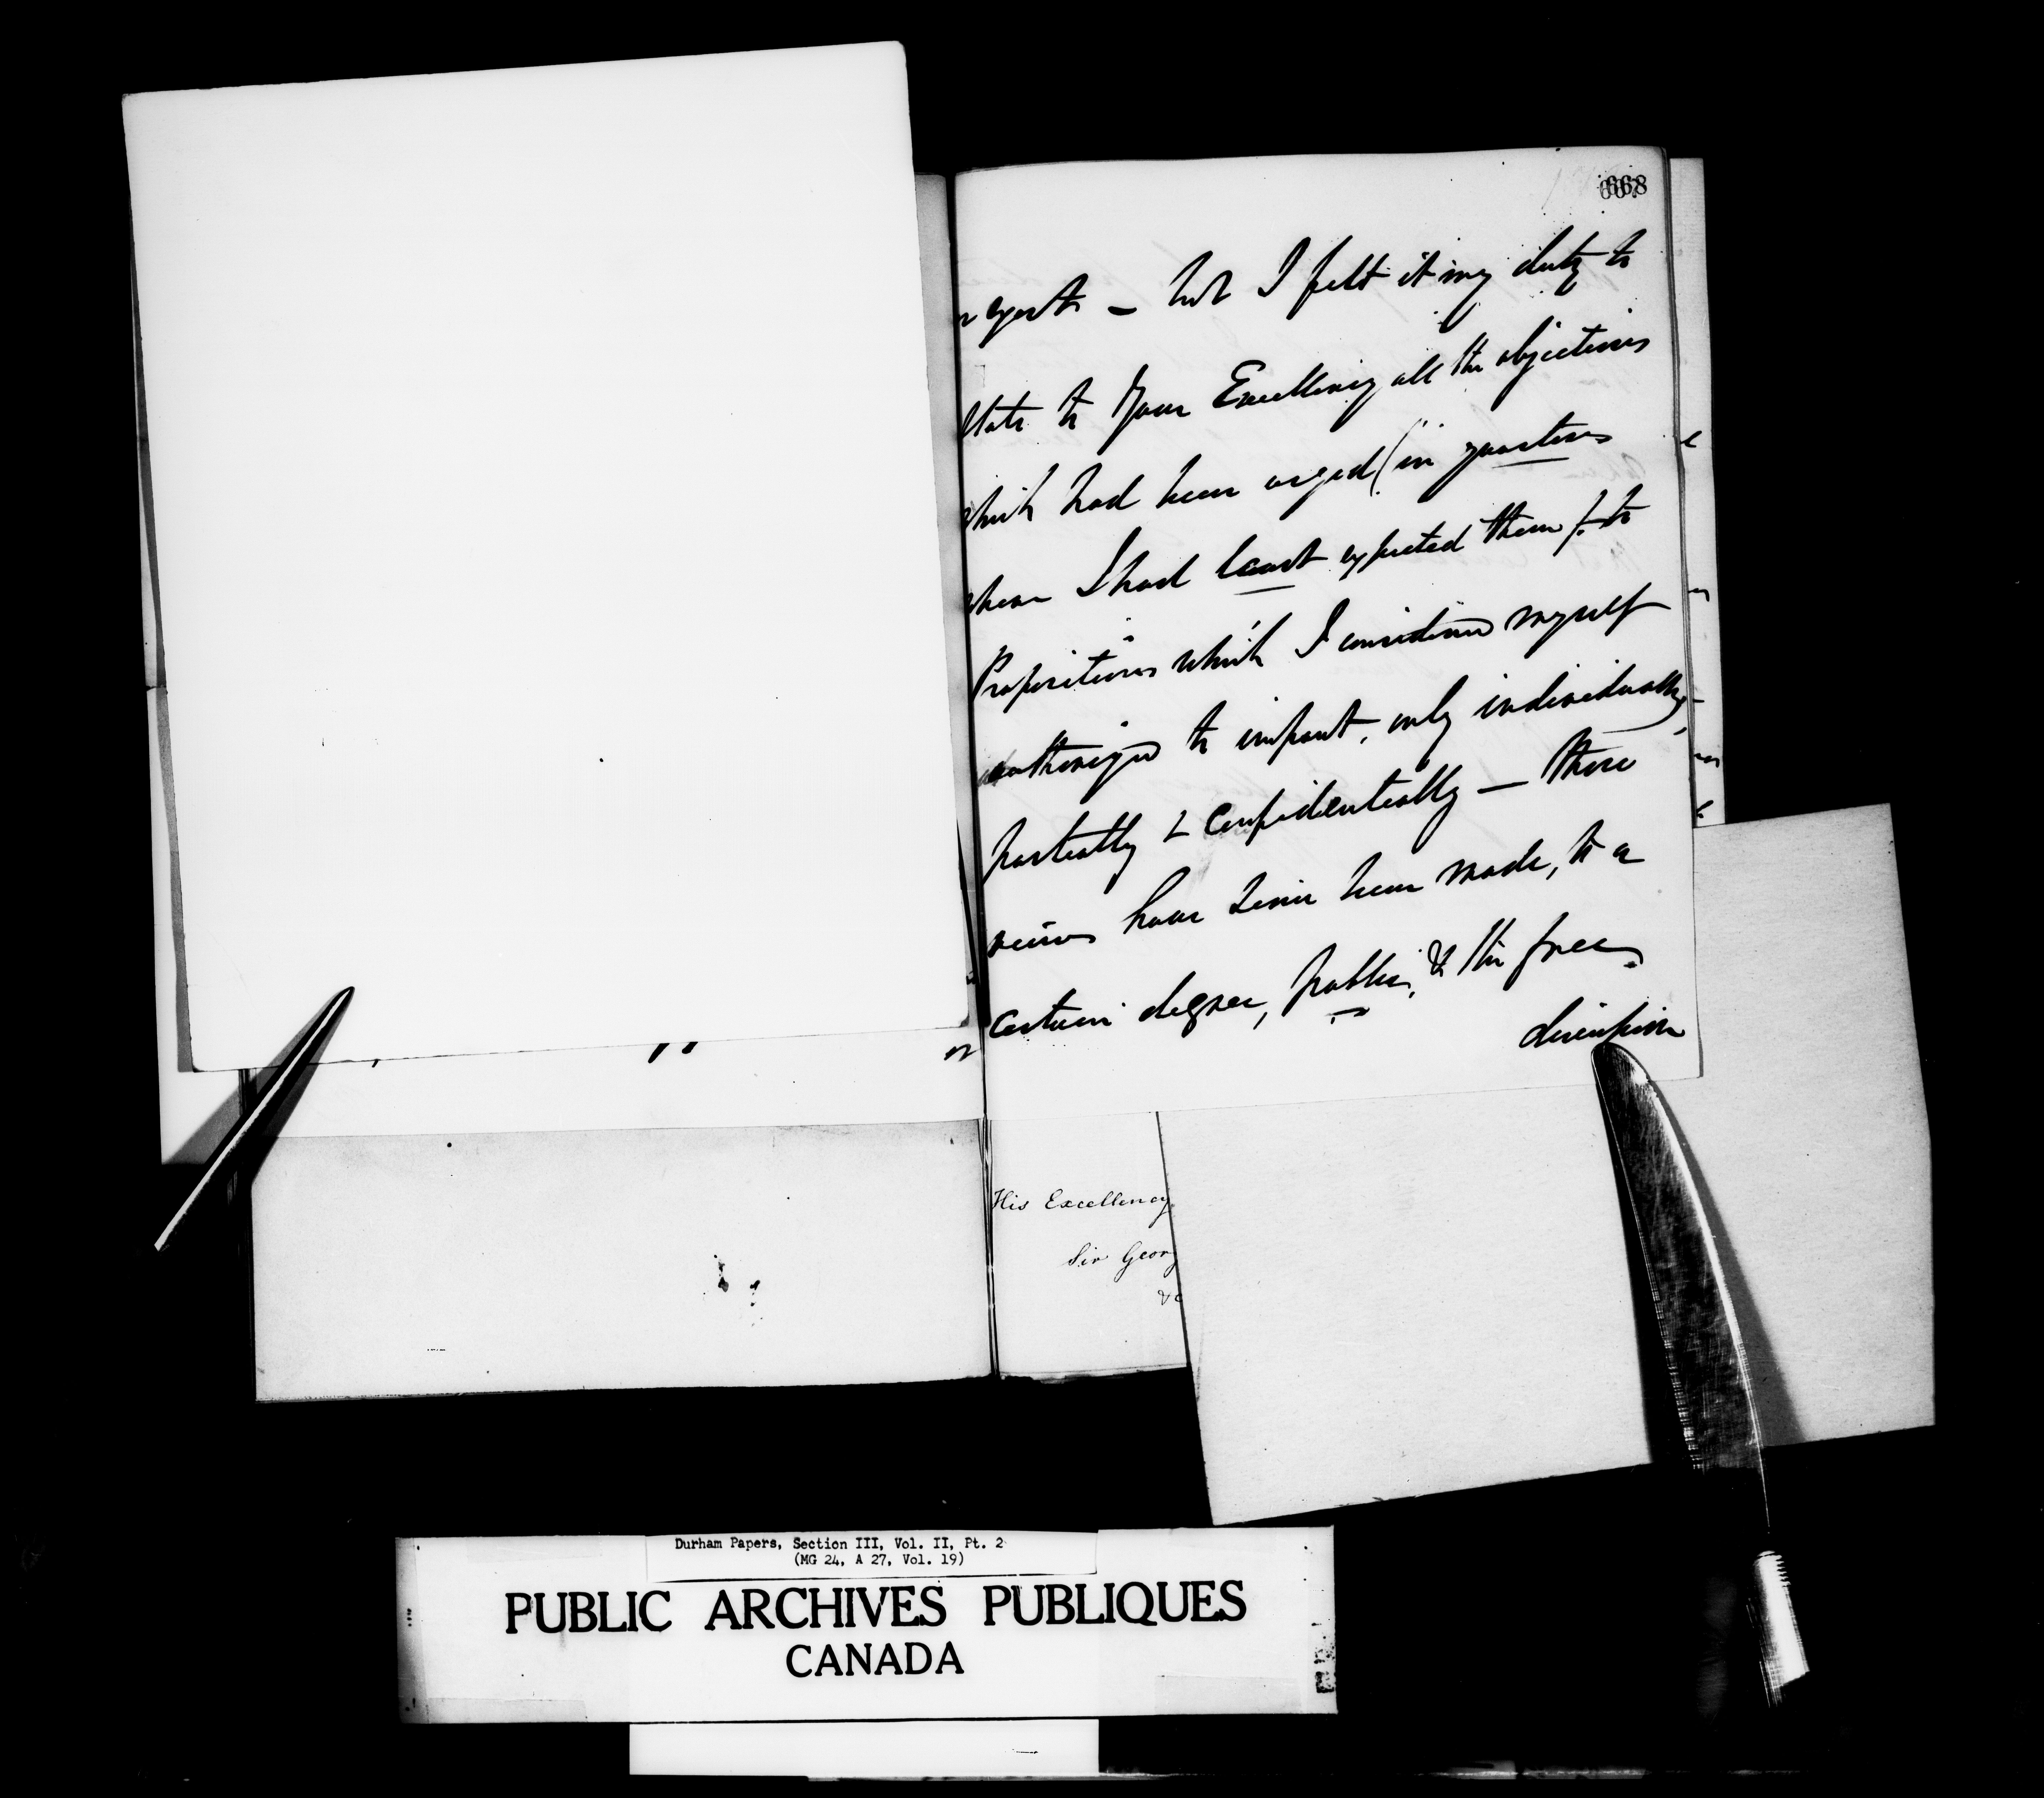 668
regrets - but I felt it my duty to
state to Your Excellency all the objections
which had been urged (in quarters
where I had least expected them) to
Propositions which I considered myself
authorized to impart, only individually,
partially & confidentially — these
views have since been made, to a
certain degree, public, & the free
discussion
His Excellency
Sir Georg
&c
Durham Papers, Section III, Vol. II, Pt. 2
(MG 24, A 27, Vol. 19)
PUBLIC ARCHIVES PUBLIQUES
CANADA